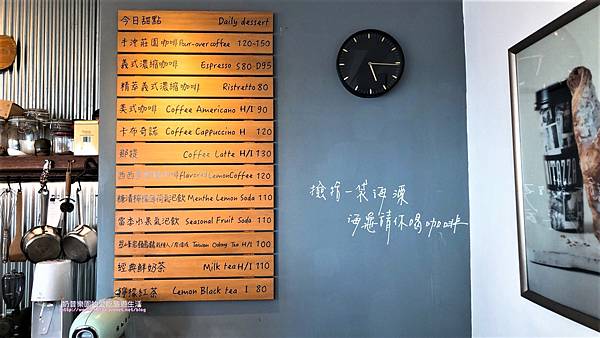 今日甜點 Daily dessert
手沖莊園咖啡 Pour-over coffee 120-150
義式濃縮咖啡 Espresso S80-D95
精萃義式濃縮咖啡 Ristretto 80
美式咖啡 Coffee Americano H/I 90
卡布奇諾 Coffee Cappuccino H 120
那提 Coffee Latte H/I 130
西西里 flavored Lemon Coffee 120
糖漬檸檬薄荷氣泡飲 Menthe Lemon Soda 110
當季水果氣泡飲 Seasonal Fruit Soda 110
Taiwan Oolong Tea H/I 100
經典鮮奶茶 Milk tea H/I 110
檸檬紅茶 Lemon Black tea I 80
撿拾一袋海漂
海龜請你喝咖啡